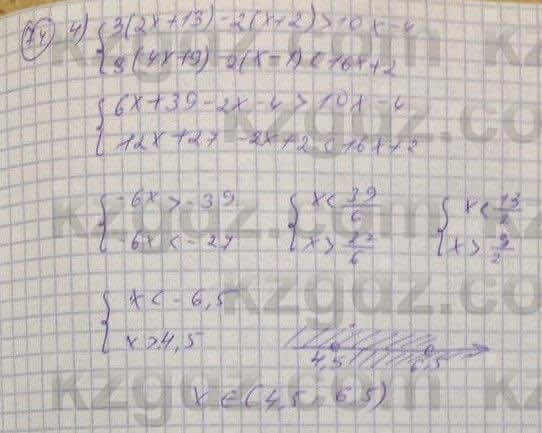 74 4) { 3(2x+13)-2(x+2)>10x-4
3(4x+9)-2(x-1)<16x+2
{ 6x+39-2x-4>10x-4
12x+27-2x+2<16x+2
{ -6x>-39 { x<39/6 { x<13/2
-6x<-27 x>27/6 x>9/2
{ x<-6,5
x>4,5
4,5 6,5
x∈(4,5 6,5)
kzgdz.com